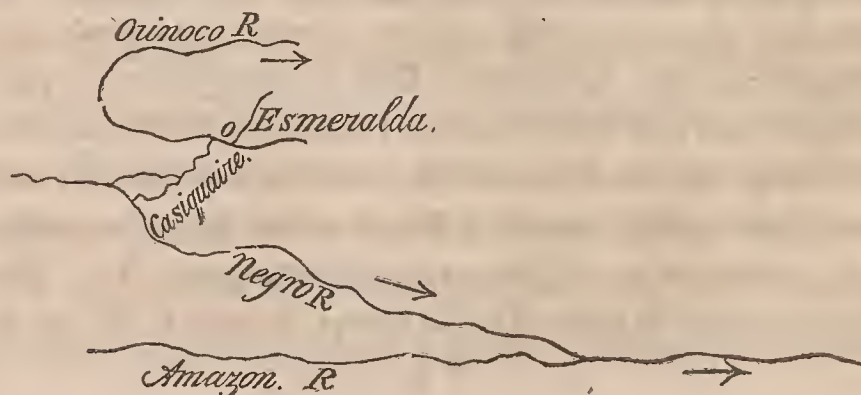 Orinoco R
Esmeralda.
Casiquaire.
Negro R
Amazon. R